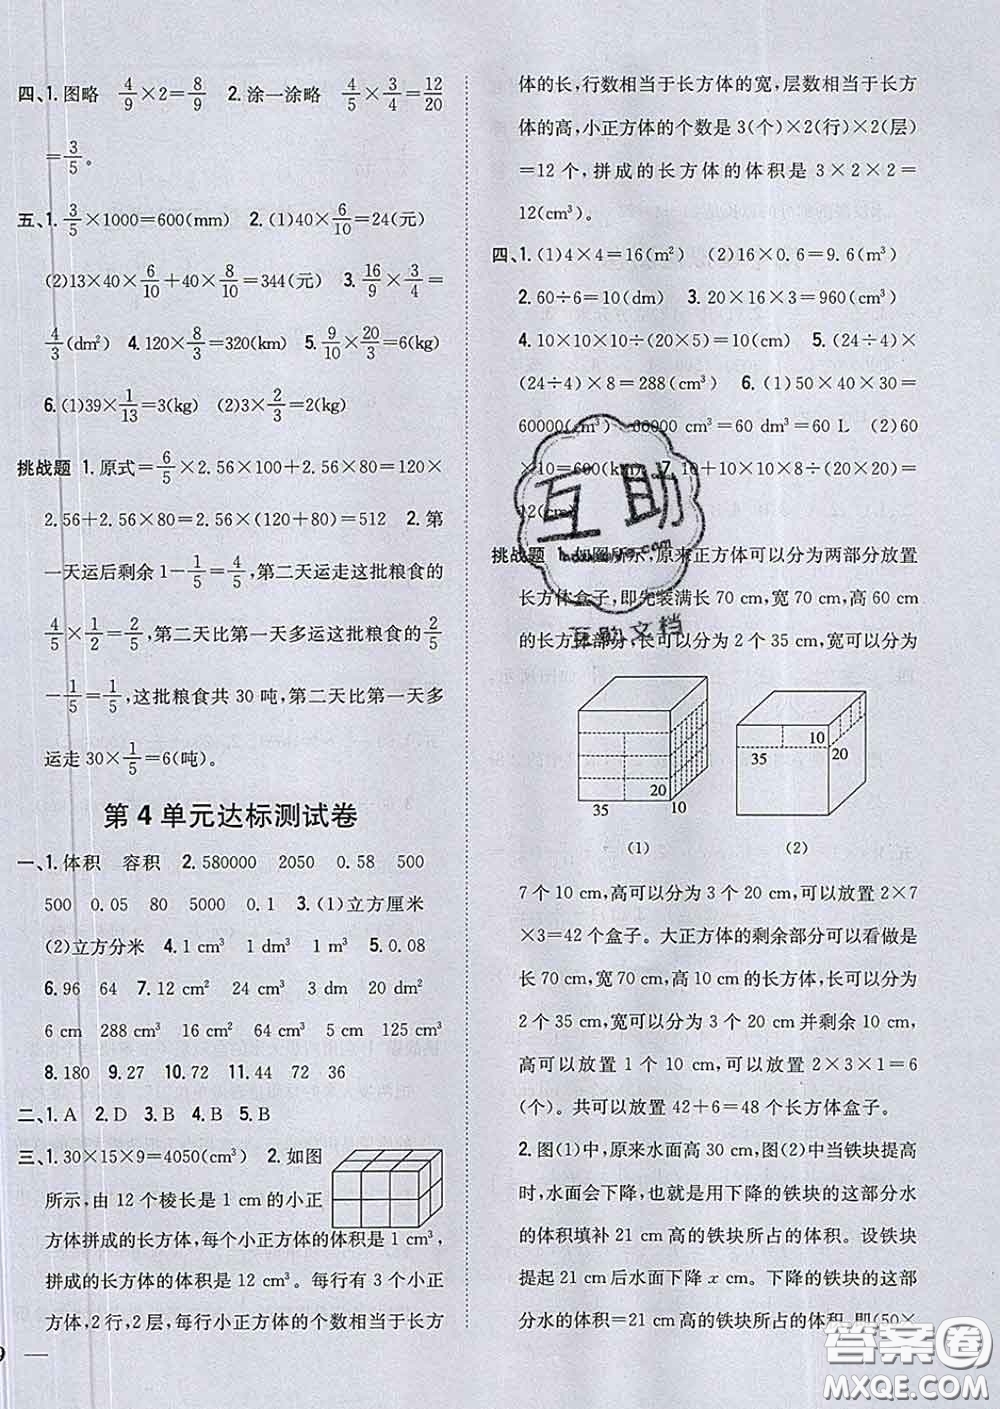 四、1. 图略 4/9×2=8/9 2. 涂一涂略 4/5×3/4=12/20
=3/5。
五、1. 3/5×1000=600(mm) 2. (1)40×6/10=24(元)
(2)13×40×6/10+40×8/10=344(元) 3. 16/9×3/4=
4/3(dm²) 4. 120×8/3=320(km) 5. 9/10×20/3=6(kg)
6. (1)39×1/13=3(kg) (2)3×2/3=2(kg)
挑战题 1. 原式=6/5×2.56×100+2.56×80=120×
2.56+2.56×80=2.56×(120+80)=512 2. 第
一天运后剩余1-1/5=4/5,第二天运走这批粮食的
4/5×1/2=2/5,第二天比第一天多运这批粮食的2/5
-1/5=1/5,这批粮食共 30 吨,第二天比第一天多
运走 30×1/5=6(吨)。
第 4 单元达标测试卷
一、1. 体积 容积 2. 580000 2050 0.58 500
500 0.05 80 5000 0.1 3. (1)立方厘米
(2)立方分米 4. 1 cm³ 1 dm³ 1 m³ 5. 0.08
6. 96 64 7. 12 cm² 24 cm³ 3 dm 20 dm²
6 cm 288 cm³ 16 cm² 64 cm³ 5 cm 125 cm³
8. 180 9. 27 10. 72 11. 44 72 36
二、1. A 2. D 3. B 4. B 5. B
三、1. 30×15×9=4050(cm³) 2. 如图
所示,由 12 个棱长是 1 cm 的小正
方体拼成的长方体,每个小正方体的体积是 1 cm³,
拼成的长方体的体积是 12 cm³。每行有 3 个小正
方体,2 行,2 层,每行小正方体的个数相当于长方
9
体的长,行数相当于长方体的宽,层数相当于长方
体的高,小正方体的个数是 3(个)×2(行)×2(层)
=12 个,拼成的长方体的体积是 3×2×2=
12(cm³)。
四、1. (1)4×4=16(m²) (2)16×0.6=9.6(m³)
2. 60÷6=10(dm) 3. 20×16×3=960(cm³)
4. 10×10×10÷(20×5)=10(cm) 5. (24÷4)×
(24÷4)×8=288(cm³) 6. (1)50×30×40=
60000(cm³) 60000 cm³=60 dm³=60 L (2)60
×10=600(km) 7. 10+10×10×8÷(20×20)=
12(cm)
挑战题 1. 如图所示,原来正方体可以分为两部分放置
长方体盒子,即先装满长 70 cm,宽 70 cm,高 60 cm
的长方体部分,长可以分为 2 个 35 cm,宽可以分为
35 20 10
35 10 20
(1) (2)
7 个 10 cm,高可以分为 3 个 20 cm,可以放置 2×7
×3=42 个盒子。大正方体的剩余部分可以看做是
长 70 cm,宽 70 cm,高 10 cm 的长方体,长可以分为
2 个 35 cm,宽可以分为 3 个 20 cm 并剩余 10 cm,
高可以放置 1 个 10 cm,可以放置 2×3×1=6
(个)。共可以放置 42+6=48 个长方体盒子。
2. 图(1)中,原来水面高 30 cm,图(2)中当铁块提高
时,水面会下降,也就是用下降的铁块的这部分水
的体积填补 21 cm 高的铁块所占的体积。设铁块
提起 21 cm 后水面下降 x cm。下降的铁块的这部
分水的体积=21 cm 高的铁块所占的体积,即(50×
互助
互助文档
答案圈
MXQE.COM